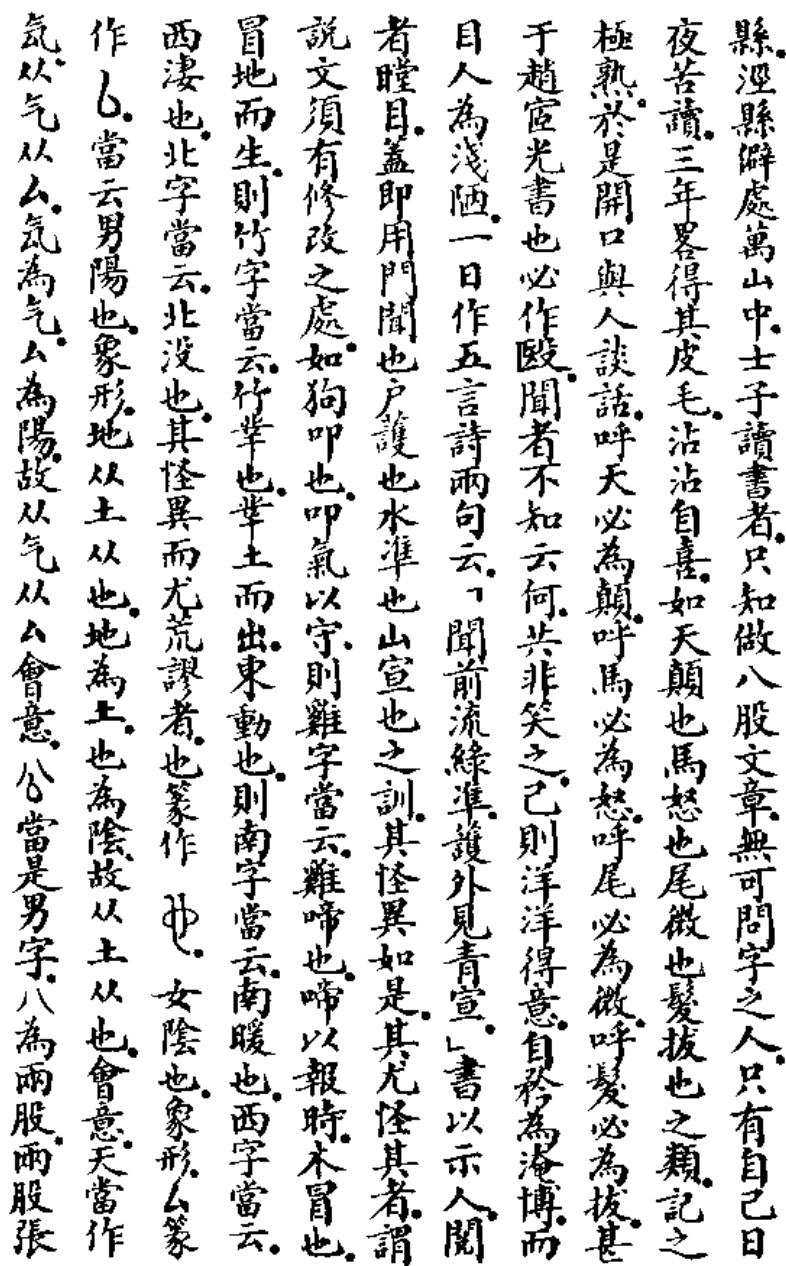 縣。涇縣僻處萬山中。士子讀書者。只知做八股文章。無可問字之人。只有自己日
夜苦讀。三年畧得其皮毛。沾沾自喜。如天顛也馬怒也尾微也髮拔也之類。記之
極熟。於是開口與人談話。呼天必為顛。呼馬必為怒。呼尾必為微。呼髮必為拔。甚
于趙宧光書也必作毉。聞者不知云何。共非笑之。己則洋洋得意。自矜為淹博。而
目人為淺陋。一日作五言詩兩句云。「聞前流綠準。護外見青宣。」書以示人。閱
者瞠目。蓋即用門聞也户護也水準也山宣也之訓。其怪異如是。其尤怪其者。謂
説文須有修改之處。如狗叩也。叩氣以守。則雞字當云。雞啼也。啼以報時。木冒也。
冒地而生。則竹字當云。竹莑也。莑土而出。東動也。則南字當云。南暖也。西字當云。
西淒也。北字當云。北没也。其怪異而尤荒謬者。也篆作 女陰也。象形。厶篆
作 當云男陽也。象形。地从土从也。地為土。也為陰。故从土从也。會意。天當作
気。从气从厶。気為气。厶為陽。故从气从厶會意。㕣當是男字。八為兩股。兩股張